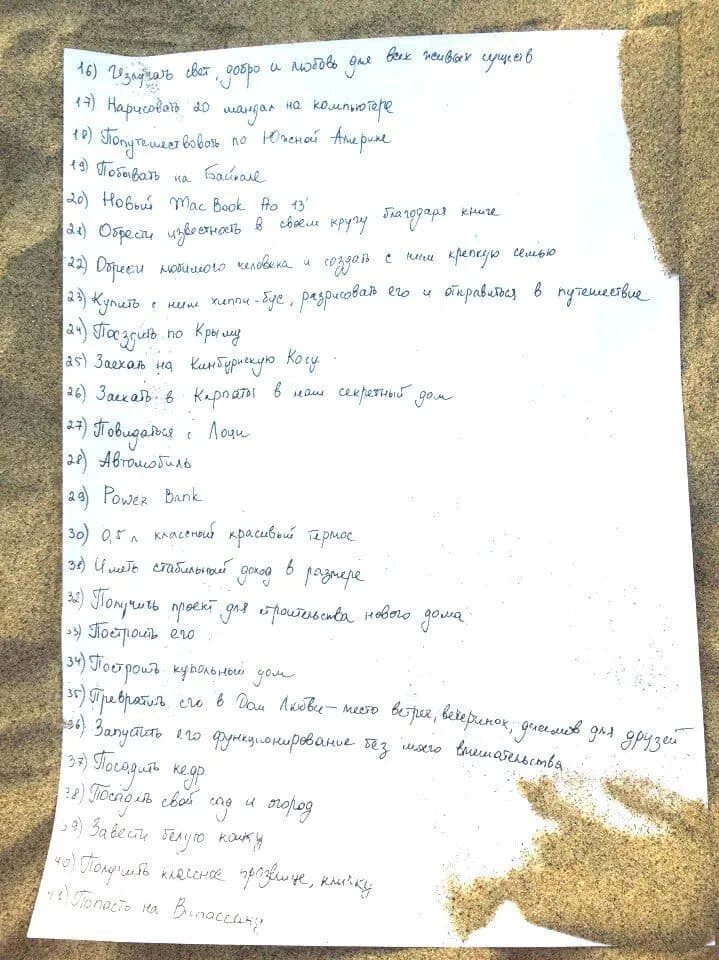 16) Излучать свет, добро и любовь для всех живых существ
17) Нарисовать 20 мандал на компьютере
18) Попутешествовать по Южной Америке
19) Побывать на Байкале
20) Новый MacBook Pro 13'
21) Обрести известность в своем кругу благодаря книге
22) Обрести любимого человека и создать с ним крепкую семью
23) Купить с ним хиппи-бус, разрисовать его и отправиться в путешествие
24) Поездить по Крыму
25) Заехать на Кинбурнскую Косу
26) Заехать в Карпаты в наш секретный дом
27) Повидаться с Лоци
28) Автомобиль
29) Power Bank
30) 0,5 л классный красивый термос
31) Иметь стабильный доход в размере
32) Получить проект для строительства нового дома
33) Построить его
34) Построить купольный дом
35) Превратить его в Дом Любви - место встреч, вечеринок, для друзей
36) Запустить его функционирование без моего вмешательства
37) Посадить кедр
38) Посадить свой сад и огород
39) Завести белую кошку
40) Получить классное прозвище, кличку
41) Попасть на Випассану